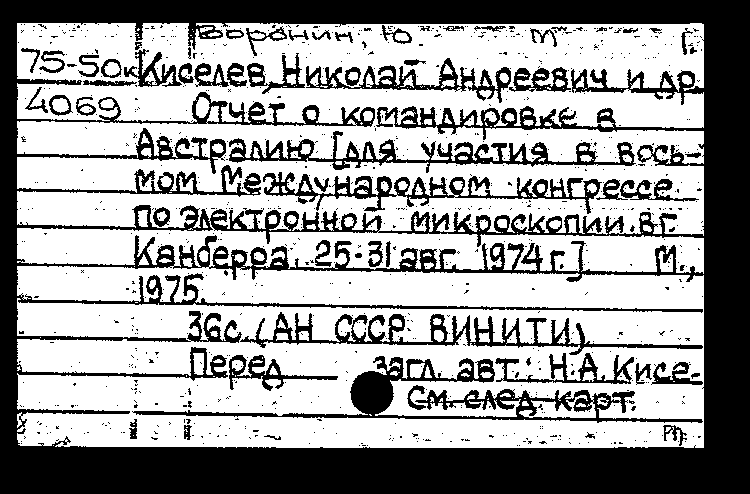 Воронин, Ю. М
75-50к Киселев, Николай Андреевич и др.
4069 Отчет о командировке в
Австралию [для участия в вось-
мом Международном конгрессе
по электронной микроскопии. в г.
Канберра. 25-31 авг. 1974 г.] М.,
1975.
36 с. (АН СССР. ВИНИТИ).
Перед загл. авт.: Н.А. Кисе-
См. след. карт.